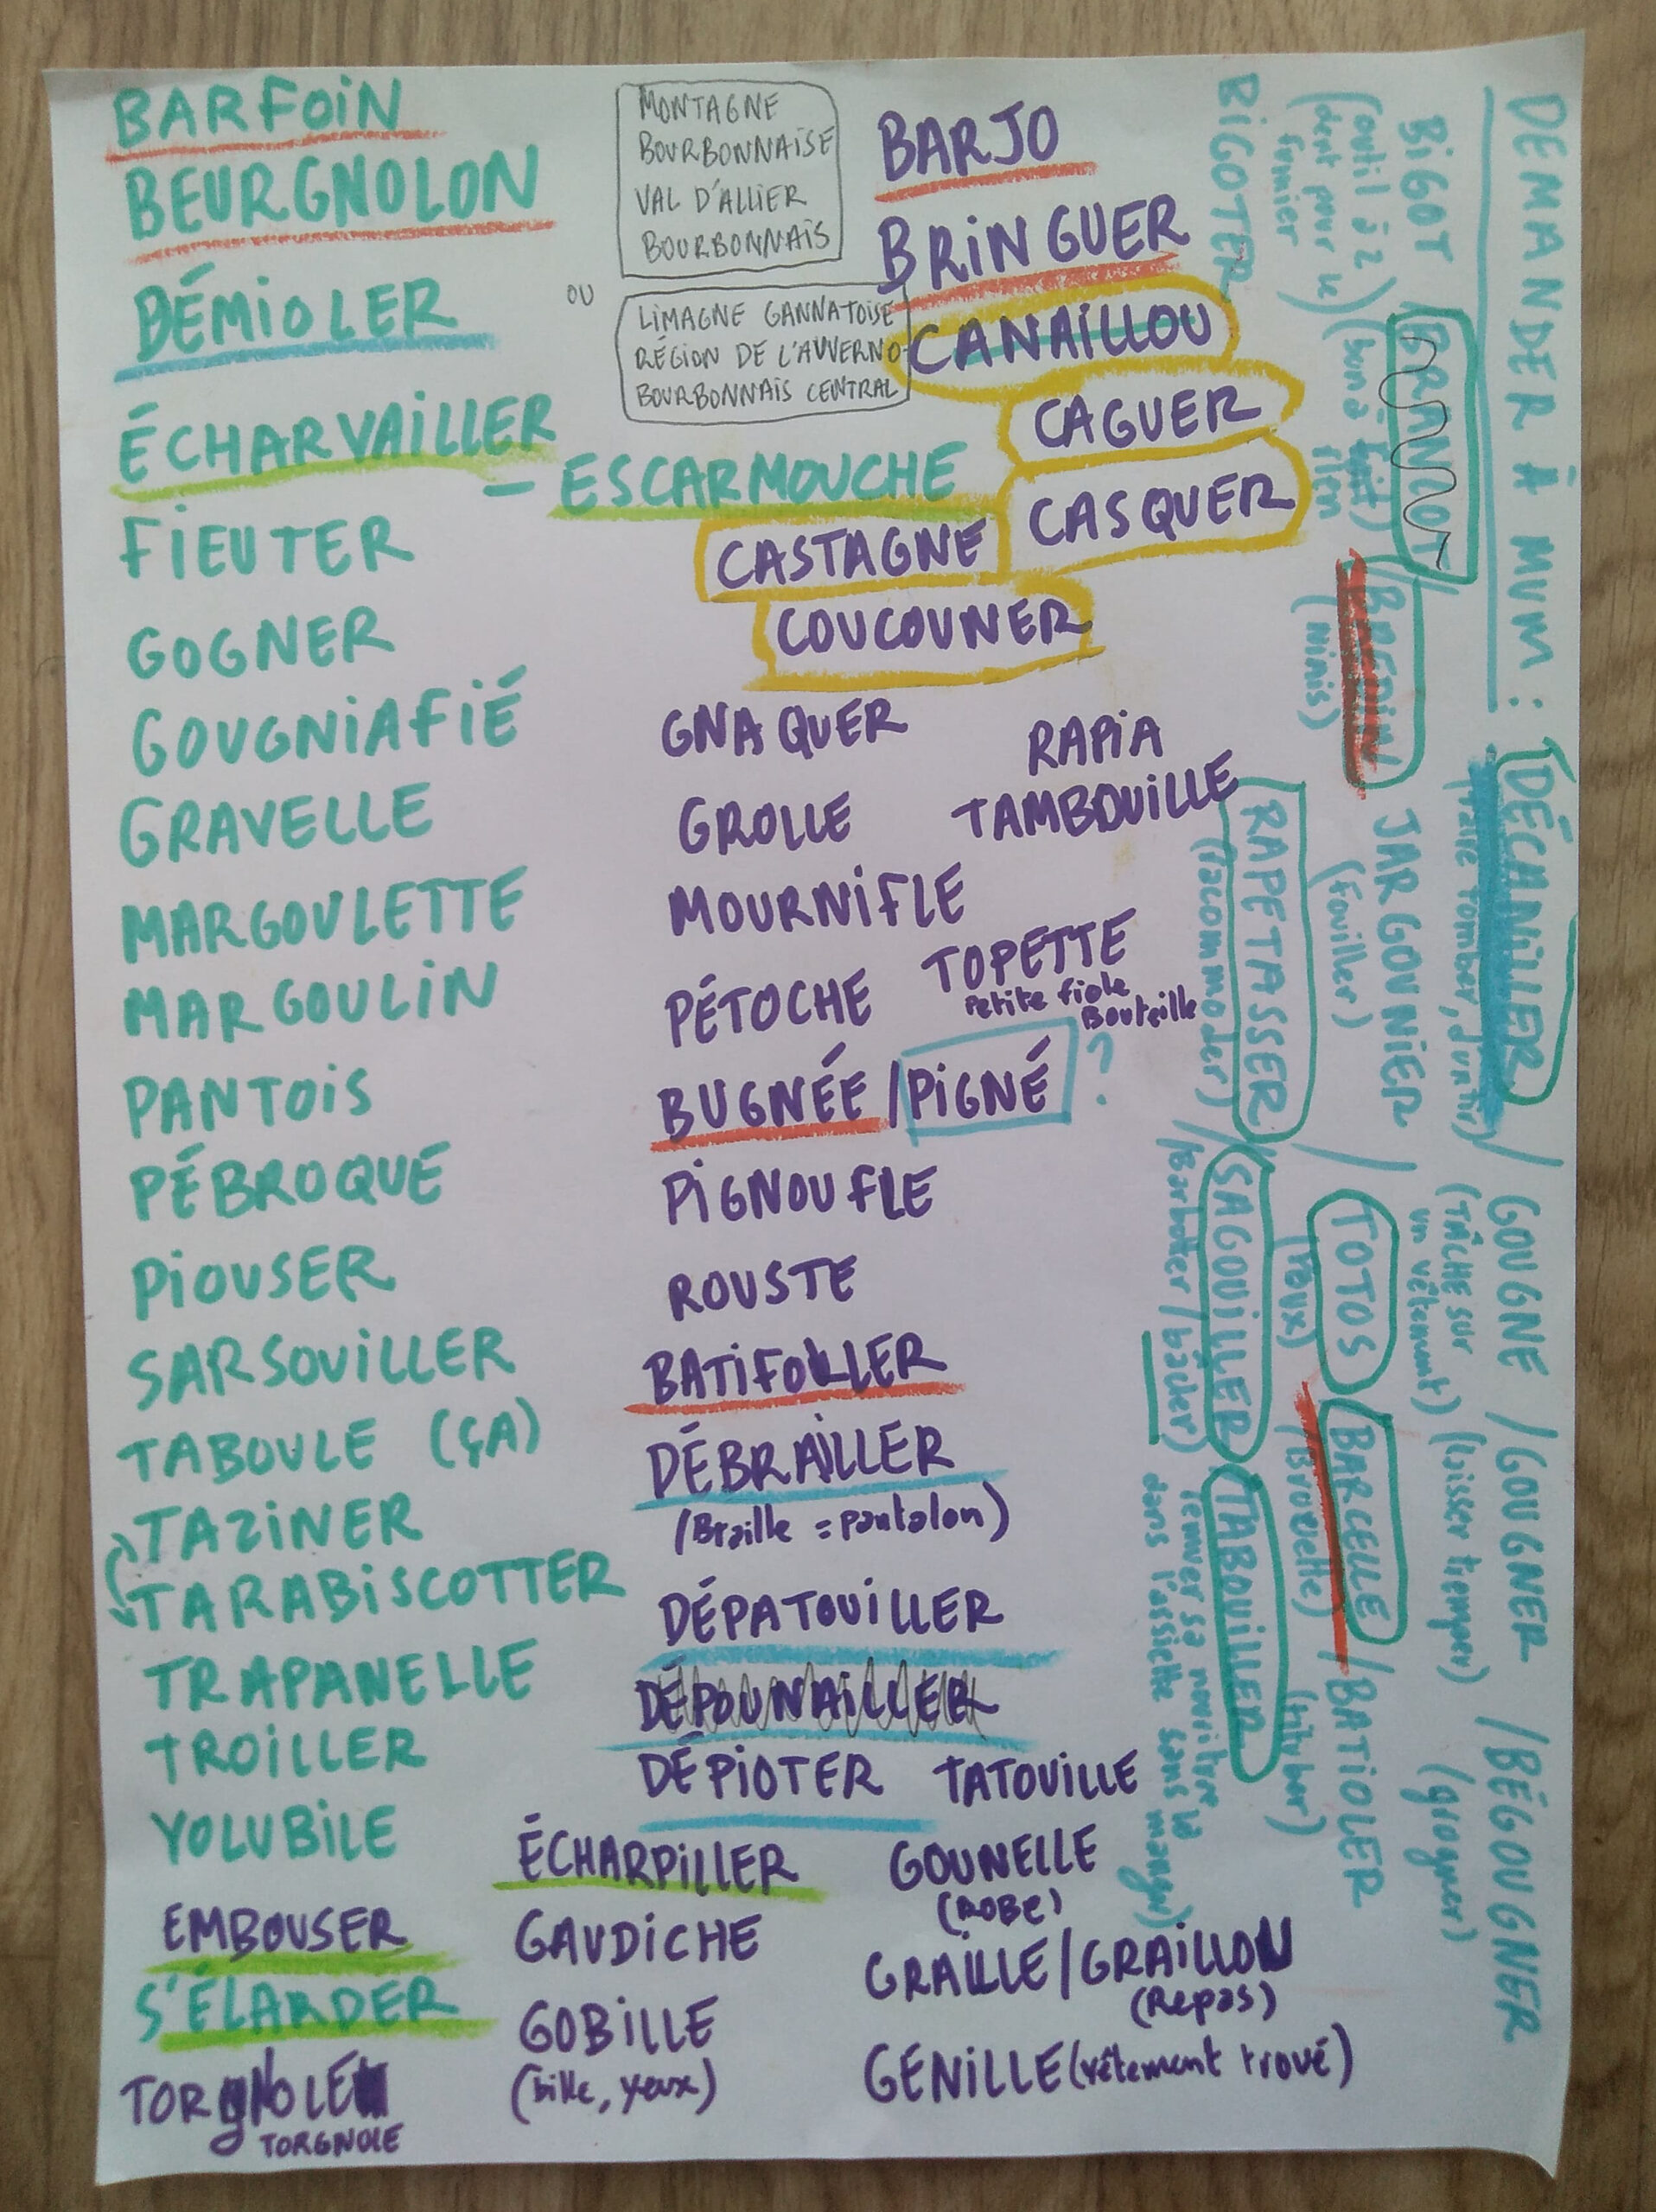 BARFOIN
BEURGNOLON
DÉMIOLER
ÉCHARVAILLER
– ESCARMOUCHE
FIEUTER
GOGNER
GOUGNIAFIÉ
GRAVELLE
MARGOULETTE
MARGOULIN
PANTOIS
PÉBROQUE
PIOUSER
SARSOUILLER
TABOULE (ÇA)
TAZINER
TARABISCOTTER
TRAPANELLE
TROILLER
VOLUBILE
EMBOUSER
S'ÉLARDER
TORGNOLE
TORGNOLE
MONTAGNE
BOURBONNAISE
VAL D'ALLIER
BOURBONNAIS
OU
LIMAGNE GANNATOISE
RÉGION DE L'AUVERNO-
BOURBONNAIS CENTRAL
BARJO
BRINGUER
CANAILLOU
CAGUER
CASQUER
CASTAGNE
COUCOUNER
GNAQUER
RAPIA
GROLLE
TAMBOUILLE
MOURNIFLE
TOPETTE
Petite fiole
Bouteille
PÉTOCHE
BUGNÉE / PIGNÉ ?
PIGNOUFLE
ROUSTE
BATIFOLLER
DÉBRAILLER
(Braille = pantalon)
DÉPATOUILLER
DÉPOUNAILLER
DÉPIOTER
TATOUILLE
ÉCHARPILLER
GOUNELLE
(ROBE)
GAUDICHE
GRAILLE / GRAILLON
(Repas)
GOBILLE
(bille, yeux)
GENILLE (vêtement troué)
DEMANDER À MUM : DÉCANILLER / GOUGNE / GOUGNER / BÉGOUGNER
(faire tomber, d'un tir)
(TÂCHE SUR
un vêtement)
(laisser tremper)
(grogner)
BIGOT
(outil à 2
dent pour le
fumier)
BIGOTER
BRANNOT
(bon à
rien)
/ BREDIN /
(niais)
JARGOUNIER /
(fouiller)
TOTOS
(Poux)
BARCELLE
(Brouette)
/ BATIOLER
(tituber)
RAPETASSER /
(raccommoder)
SAGOUILLER
(Barbotter / bâcler)
TABOUILLER
(remuer sa nourriture
dans l'assiette sans la manger)